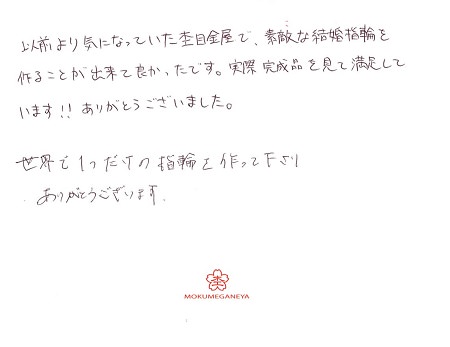 以前より気になっていた杢目金屋で、素敵な結婚指輪を
作ることが出来て良かったです。実際完成品を見て満足して
います!! ありがとうございました。
世界で1つだけの指輪を作って下さり
ありがとうございます.
MOKUMEGANEYA